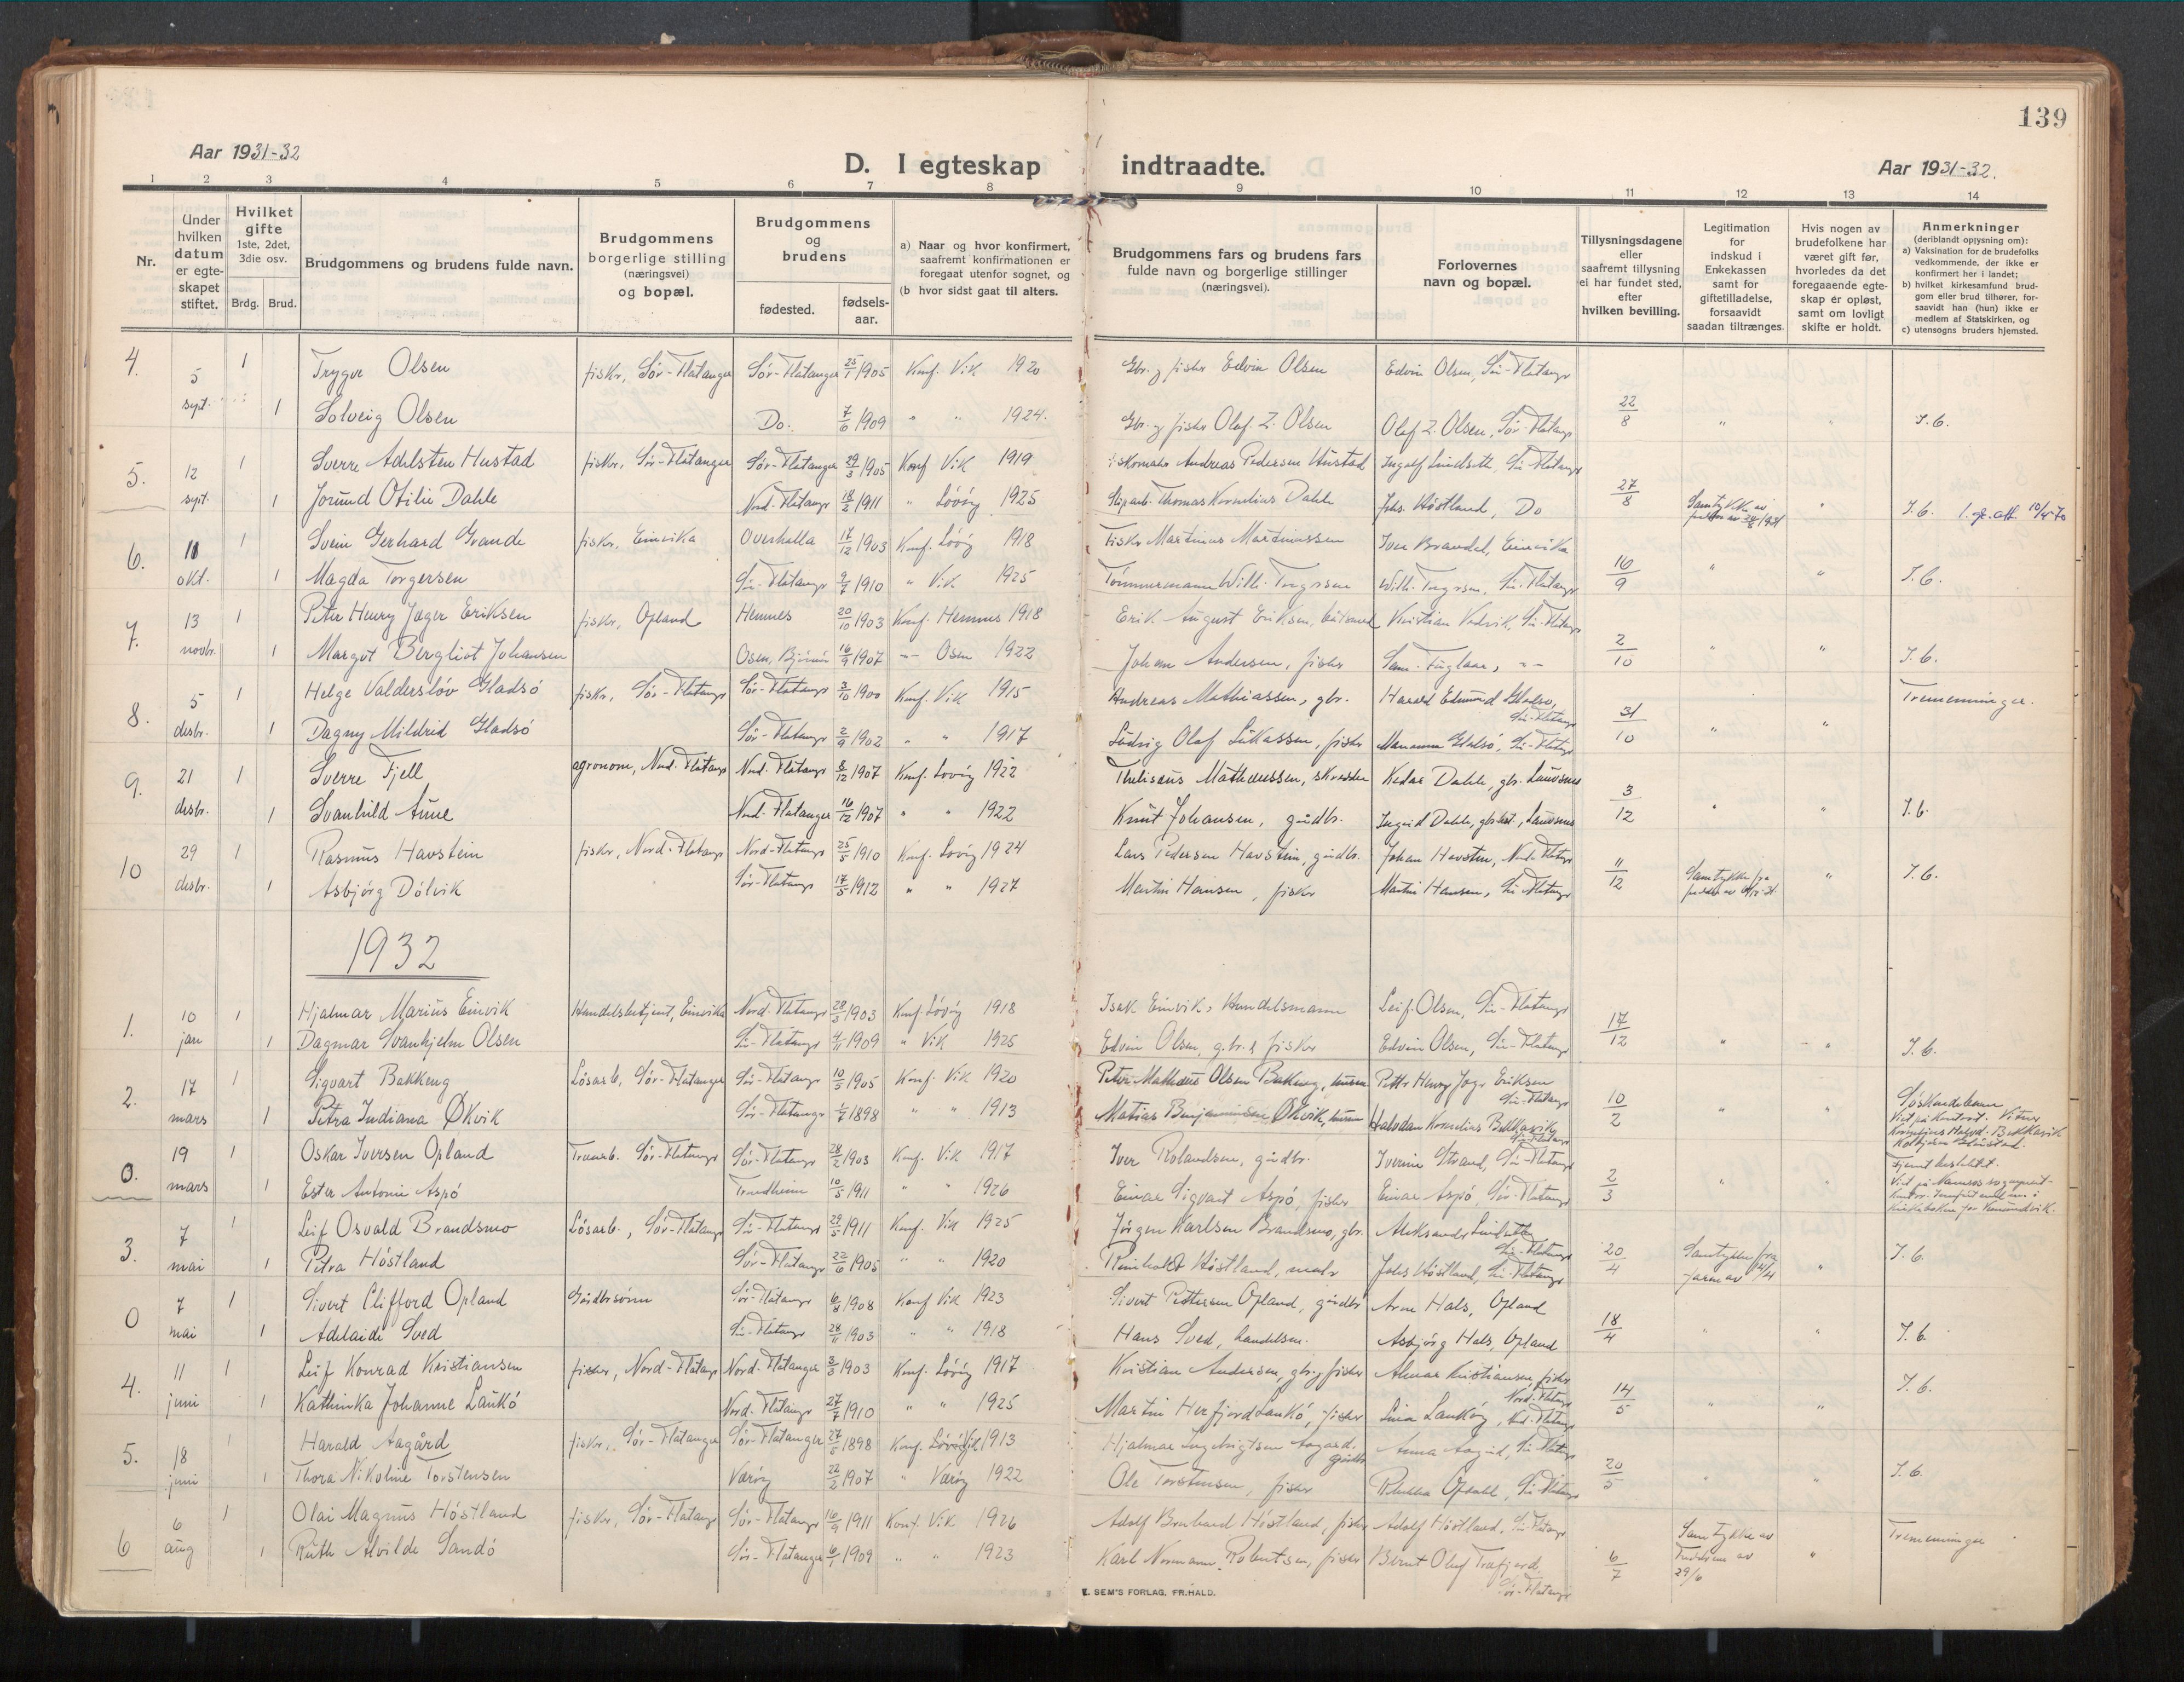 139
Aar 1931-32
D. I egteskap indtraadte.
Aar 1931-32.
1 2 3 4 5 6 7 8 9 10 11 12 13 14
Nr.
Under
hvilken
datum
er egte-
skapet
stiftet.
Hvilket
gifte
1ste, 2det,
3die osv.
Brdg. Brud.
Brudgommens og brudens fulde navn.
Brudgommens
borgerlige stilling
(næringsvei)
og bopæl.
Brudgommens
og
brudens
fødested.
fødsels-
aar.
a) Naar og hvor konfirmert,
saafremt konfirmationen er
foregaat utenfor sognet, og
(b hvor sidst gaat til alters.
Brudgommens fars og brudens fars
fulde navn og borgerlige stillinger
(næringsvei).
Forlovernes
navn og bopæl.
Tillysningsdagene
eller
saafremt tillysning
ei har fundet sted,
efter
hvilken bevilling.
Legitimation
for
indskud i
Enkekassen
samt for
giftetilladelse,
forsaavidt
saadan tiltrænges.
Hvis nogen av
brudefolkene har
været gift før,
hvorledes da det
foregaaende egte-
skap er opløst,
samt om lovligt
skifte er holdt.
Anmerkninger
(deriblandt oplysning om):
a) Vaksination for de brudefolks
vedkommende, der ikke er
konfirmert her i landet;
b) hvilket kirkesamfund brud-
gom eller brud tilhører, for-
saavidt han (hun) ikke er
medlem af Statskirken, og
c) utensogns bruders hjemsted.
4. 5 sept. 1 Trygve Olsen fisker, Sør-Flatanger Sør-Flatanger 25/1 1905 Konf. Vik 1920 Gbr. og fisker Edvin Olsen Edvin Olsen, Sør-Flatanger
1 Solveig Olsen Do. 7/6 1909 " " 1924. Gbr. og fisker Olaf Z. Olsen Olaf Z. Olsen, Sør-Flatanger 22/8 " " I.b.
5. 12 sept. 1 Sverre Adelsten Hustad fisker, Sør-Flatanger Sør-Flatanger 29/3 1905 Konf Vik 1919 Andreas Pedersen Hustad Ingolf Lindseth, Sør-Flatanger
1 Jorund Otilie Dahle Nord-Flatanger 18/2 1911 " Løvøy 1925 Thomas Kornelius Dahle Johs. Høstland, Do 27/8 Samtykke av " I.b.
6. 11 okt. 1 Svein Gerhard Grande fisker, Einvika Overhalla 17/12 1903 Konf. Løvøy 1918 Fisker Martinus Martinussen Iver Brandel, Einvika
1 Magda Torgersen Sør-Flatanger 9/7 1910 " Vik 1925 Tømmermann Wilh. Torgersen Wilh. Torgersen, Sør-Flatanger 16/9 " " I.b.
7. 13 novbr. 1 Peter Henry Jæger Eriksen fisker, Opland Hemnes 20/10 1903 Konf. Hemnes 1918 Erik August Eriksen, Kristian Vedvik, Sør-Flatanger
1 Margot Bergliot Johansen Osen, 16/9 1907 -"- Osen 1922 Johan Andersen, fisker Sam. Fuglaas, -"- 2/10 " " I.b.
8. 5 desbr. 1 Helge Valdersløv Gladsø fisker, Sør-Flatanger Sør-Flatanger 3/10 1900 Konf. Vik 1915 Andreas Mathiassen, gbr. Harald Edmund Gladsø, Sør-Flatanger Tremenninger.
1 Dagny Mildrid Gladsø Sør-Flatanger 2/9 1902 " " 1917 Ludvig Olaf Lukassen, fisker Gladsø, Sør-Flatanger 31/10 " "
9. 21 desbr. 1 Sverre Fjell agronom, Nord-Flatanger Nord-Flatanger 8/12 1907 Konf. Løvøy 1922 Matheussen, skredder Kedar Dahle, gbr. Lauvsnes
1 Svanhild Aune Nord-Flatanger 16/12 1907 " " 1922 Knut Johansen, gårdbr. Ingrid Dahle, Lauvsnes 3/12 " " I.b.
10 29 desbr. 1 Rasmus Havstein fisker, Nord-Flatanger Nord-Flatanger 25/5 1910 Konf. Løvøy 1924 Lars Pedersen Havstein, gårdbr. Johan Havstein, Nord-Flatanger
1 Asbjørg Dølvik Sør-Flatanger 17/5 1912 " " 1927 Martin Hansen, fisker Martin Hansen, Sør-Flatanger 11/12 Samtykke fra " I.b.
1932
1. 10 jan 1 Hjalmar Marius Einvik Handelsbetjent, Einvika Nord-Flatanger 28/3 1903 Konf. Løvøy 1918 Isak Einvik, Handelsmann Leif Olsen, Sør-Flatanger
1 Dagmar Svanhjelm Olsen Sør-Flatanger 4/11 1909 " Vik 1925 Edvin Olsen, g.br. & fisker Edvin Olsen, Sør-Flatanger 17/12 " " I.b.
2. 17 mars 1 Sigvart Bakkeng Løsarb, Sør-Flatanger Sør-Flatanger 10/5 1905 Konf. Vik 1920 Peter Matheus Olsen Bakeng, Petter Henry Jæger Eriksen Sør-Flatanger
1 Petra Indiana Økvik Sør-Flatanger 1898 " " 1913 Matias Benjaminsen Økvik, Halvdan Kornelius Bekkavik Sør-Flatanger 10/2 " " Søskendebarn Viet på kontoret. Vitner
0. 19 mars 1 Oskar Iversen Opland Sør-Flatanger Sør-Flatanger 28/2 1903 Konf. Vik 1917 Iver Rolandsen, gårdbr. Iverine Strand, Sør-Flatanger
1 Ester Antonie Aspø Trondheim 10/5 1911 " " 1926 Einar Sigvart Aspø, fisker Einar Aspø, Sør-Flatanger 2/3 " " Viet på Namsos
3. 7 mai 1 Leif Osvald Brandsmo Løsarb., Sør-Flatanger Sør-Flatanger 29/5 1911 Konf. Vik 1925 Jørgen Karlsen Brandsmo, gbr. Aleksander Lindseth Sør-Flatanger
1 Petra Høstland Sør-Flatanger 22/6 1905 " " 1920 Reinholdt Høstland, Johs Høstland, Sør-Flatanger 20/4 Samtykke fra faren av " I.b.
0 7 mai 1 Sivert Clifford Opland Gårdbrsønn Sør-Flatanger 1908 Konf Vik 1923 Sivert Pettersen Opland, gårdbr Arne Hals, Opland
1 Adelaide Sved Sør-Flatanger 28/11 1903 " " 1918 Hans Sved, handelsm. Asbjørg Hals, Opland 18/4 " " I.b.
4. 11 juni 1 Leif Konrad Kristiansen fisker, Nord-Flatanger Nord-Flatanger 3/3 1903 Konf. Løvøy 1917 Kristian Andersen, gbr. og fisker Almar Kristiansen, fisker Nord-Flatanger I.b.
1 Kathinka Johanne Laukø Nord-Flatanger 27/7 1910 " " 1925 Martin Herfjord Laukø, fisker Lina Laukøy, Nord-Flatanger 14/5 " "
5. 18 juni 1 Harald Aagård fisker, Sør-Flatanger Sør-Flatanger 27/5 1898 Konf. Vik 1913 Hjalmar Ingebrigtsen Aagard, gårdbr Anna Aagård, Sør-Flatanger
1 Thora Nikoline Torstensen Værøy 22/2 1907 " Værøy 1922 Ole Torstensen, fisker Rebekka Opdahl, Sør-Flatanger 20/5 " " I.b.
6 6 aug 1 Olai Magnus Høstland fisker, Sør-Flatanger Sør-Flatanger 16/9 1911 Konf. Vik 1926 Adolf Bernhard Høstland, fisker Adolf Høstland, Sør-Flatanger Samtykke av Tremenninger
1 Ruth Alvilde Sandø Sør-Flatanger 6/1 1909 " " 1923 Karl Normann Robertsen, fisker Bernt Olaf Trefjord Sør-Flatanger 6/7 29/6 "
E. SEM'S FORLAG, FR.HALD.